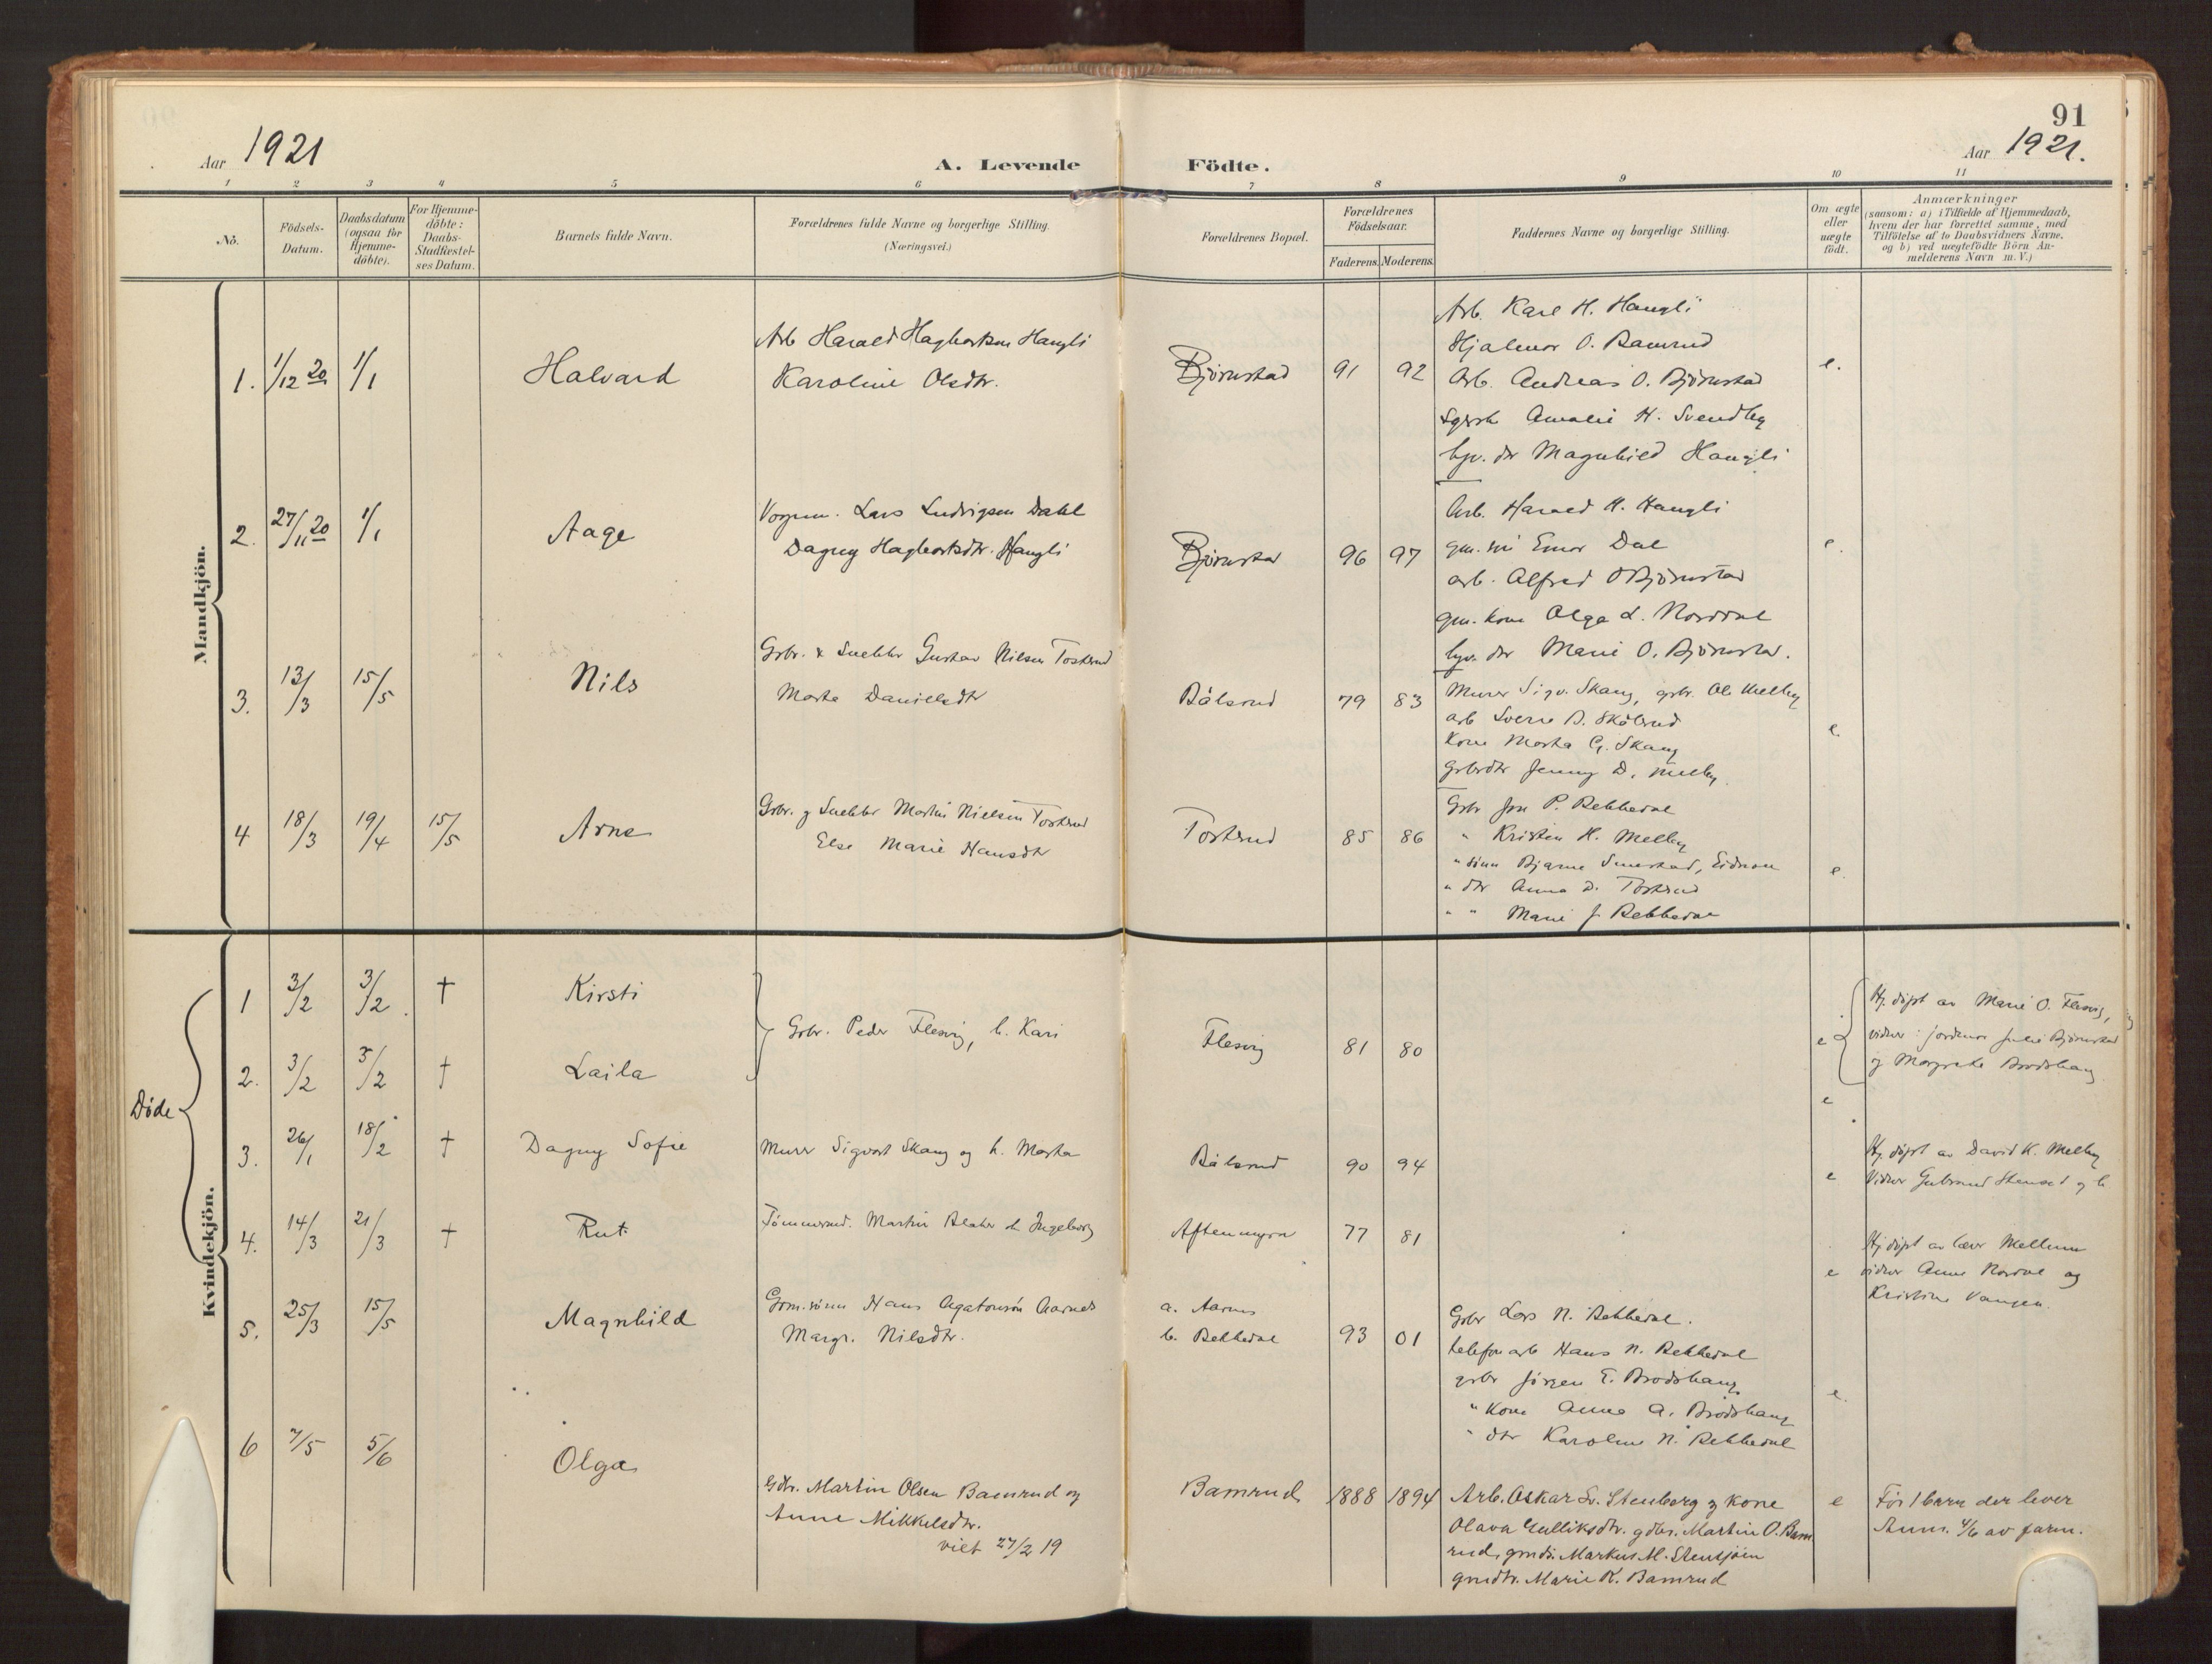 91
Aar 1921
A. Levende Födte.
Aar 1921.
1 2 3 4 5 6 7 8 9 10 11
No.
Födsels-Datum.
Daabsdatum (ogsaa for Hjemme-döbte).
For Hjemme-döbte: Daabs-Stadfæstel-ses Datum.
Barnets fulde Navn.
Forældrenes fulde Navne og borgerlige Stilling.
(Næringsvei.)
Forældrenes Bopæl.
Forældrenes Födselsaar.
Faderens. Moderens.
Faddernes Navne og borgerlige Stilling.
Om ægte eller uægte födt.
Anmærkninger
(saasom: a) i Tilfælde af Hjemmedaab,
hvem der har forrettet samme, med
Tilföielse af to Daabsvidners Navne.
og b) ved uægtefödte Börn An-
melderens Navn m. V.)
Mandkjön.
1. 1/12 20 1/1 Halvard
Arb Harald Hagbartsen Haugli
Karoline Olsdtr.
Björnstad 91 92
Arb. Karl H. Haugli
Hjalmar O. Bamrud
Arb. Andreas O. Björnstad
Amalie H. Svendby
dtr Magnhild Haugli
e.
2. 27/11 20 1/1 Aage
Lars Ludvigsen Dahl
Dagny Hagbartsdtr. Haugli
Björnstad 96 97
Arb. Harald H. Haugli
Einar Dal
arb. Alfred O Björnstad
gm. kone Olga L. Norddal
dtr Marie O. Björnstad.
e.
3. 13/3 15/5 Nils
Grbr. & Snekker Gustav Nilsen Toskrud
Marta Danielsdtr
Bålsrud 79 83
Murer Sigv. Skaug, grbr. Ole Melby
arb Sverre
kone Marta G. Skaug
grbrdtr Jenny D. Melby.
e.
4 18/3 19/4 15/5 Arne
Grbr. og Snekker Martin Nielsen Toskrud
Else Marie Hansdtr
Toskrud 85 86
Grbr Jon P. Rekkedal
" Kristen H. Melby
" sönn Bjarne Smestad, Eidnan
" dtr Anna D. Toskrud
" " Marie J Rekkedal
e.
Kvindekjön.
Döde
1 3/2 3/2. † Kirsti
2. 3/2 3/2 † Laila
Grbr. Peder Flesvig, h. Kari
Flesvig 81 80
e
e
Hj. döpt av Marie O. Flesvig,
vidner: jordmor Julie Björnstad
og Margrete Brodshaug
3. 26/1 18/2 † Dagny Sofie
Murer Sigvart Skaug og h. Marta
Bålsrud 90 94
e
Hj. döpt av David K. Melby
Vidner Gulbrand Stensrud og h.
4. 14/3 21/3 † Rut
Tömmermd. Martin h Ingeborg
Aftenmyra 77 81
e
Hj döpt av lærer Mellum
vidner Anne Nordal og
Kristine Vangen.
5. 25/3 15/5 Magnhild
Grm. sönn Hans Agatonsön Aarnes
Margr. Nilsdtr.
a. Aarnes
b. Rekkedal 93 01
Grbr Lars N. Rekkedal.
telefonarb Hans N. Rekkedal
grbr Jörgen E. Brodshaug
" kone Anna A. Brodshaug
" dtr Karoline N. Rekkedal
e.
6 7/5 5/6 Olga
Gdbr. Martin Olsen Bamrud og
Anne Mikkelsdtr.
viet 27/2 19
Bamrud 1888 1894
Arb. Oskar Sv. Stenberg og kone
Olava Gulliksdtr. gdbr. Martin O. Bam
rud, Markus M. Stensjöen
gmdtr. Marie K. Bamrud
e
Før 1 barn der lever
Anm. 4/6 av farm.